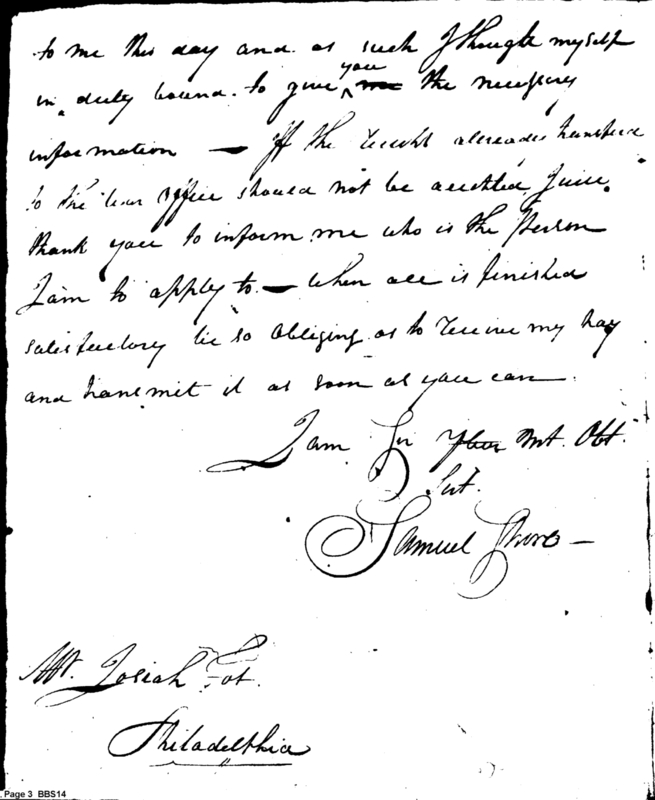 to me this day and as such I thought myself
in duty bound to give you me the necessary
information — If the receipt allreadie transferd
to the War Office should not be accepted I will
thank you to inform me who is the Person
I am to apply to — when all is finished
satisfactory be so obliging as to receive my pay
and transmit it as soon as you can
I am Sir Your Mt. Obt.
Sert.
Samuel
Mr. Josiah Fox
Philadelphia
Page 3 BBS14